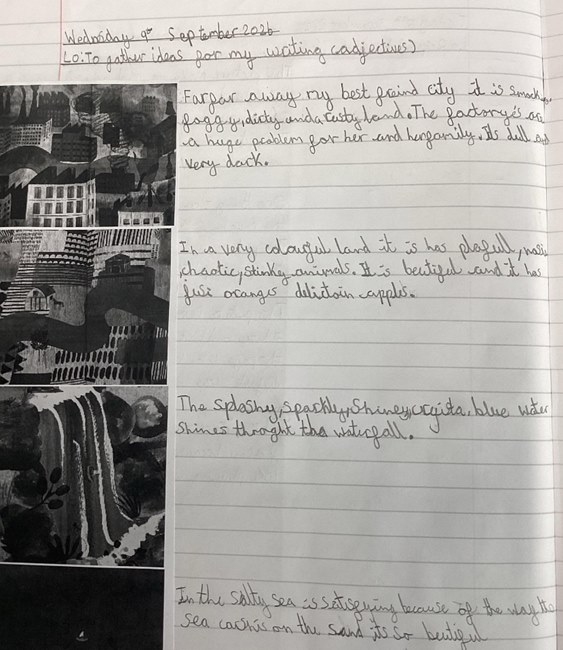 Wednesday 9th September 2026
LO: To gather ideas for my writing (adjectives)
Farfar away my best freind city it is smock,
foggy, dirty and a rusty land. The factory's are
a huge problem for her and her family. Its dull and
very dack.
In a very colourful land it is has playfull,
chaotic, stinky animals. It is beutiful and it has
jusi oranges delictoin apples.
The splashy, sparkly, Shiney, blue water
shines throught tha waterfall.
In the salty sea is satisfying because of the way the
sea on the sand its so beutiful